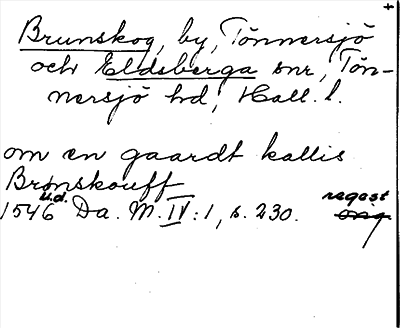 +
Brunskog, by, Tönnersjö
och Eldsberga snr, Tön-
nersjö hd, Hall. l.
om en gaardt kallis
Brønskouff
1546 u.d. Da. M. IV:1, s. 230. regest
orig